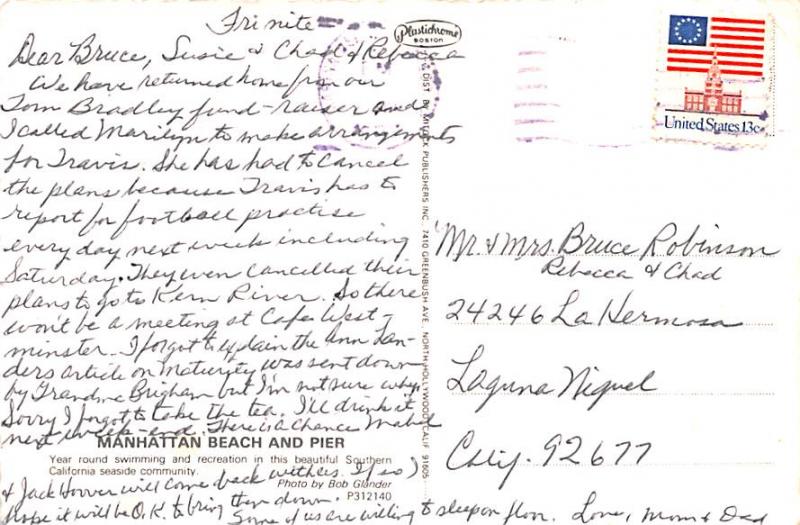 Fri nite
Dear Bruce, Susie & Chad & Rebecca
We have returned home from our
Tom Bradley fund-raiser and
I called Marilyn to make arrangements
for Travis. She has had to cancel
the plans because Travis has to
report for football practise
every day next week including
Saturday. They even cancelled their
plans to go to Kern River. So there
won't be a meeting at Cafe West-
minster. I forgot to explain the Ann Lan-
ders article on maturity was sent down
by Grandma Brigham but I'm not sure why.
Sorry I forgot to take the tea. I'll drink it
next week-end. There is a chance Mabel
& Jack Hoover will come back with us. If so,
hope it will be O.K. to bring them down.
Some of us are willing to sleep on floor. Love, Mom & Dad
MANHATTAN BEACH AND PIER
Year round swimming and recreation in this beautiful Southern
California seaside community.
Photo by Bob Glander
P312140
Plastichrome
BOSTON
DIST BY MITOCK PUBLISHERS INC. 7410 GREENBUSH AVE. NORTH HOLLYWOOD, CALIF 91605
United States 13c
Mr & Mrs. Bruce Robinson
Rebecca & Chad
24246 La Hermosa
Laguna Niguel
Calif. 92677